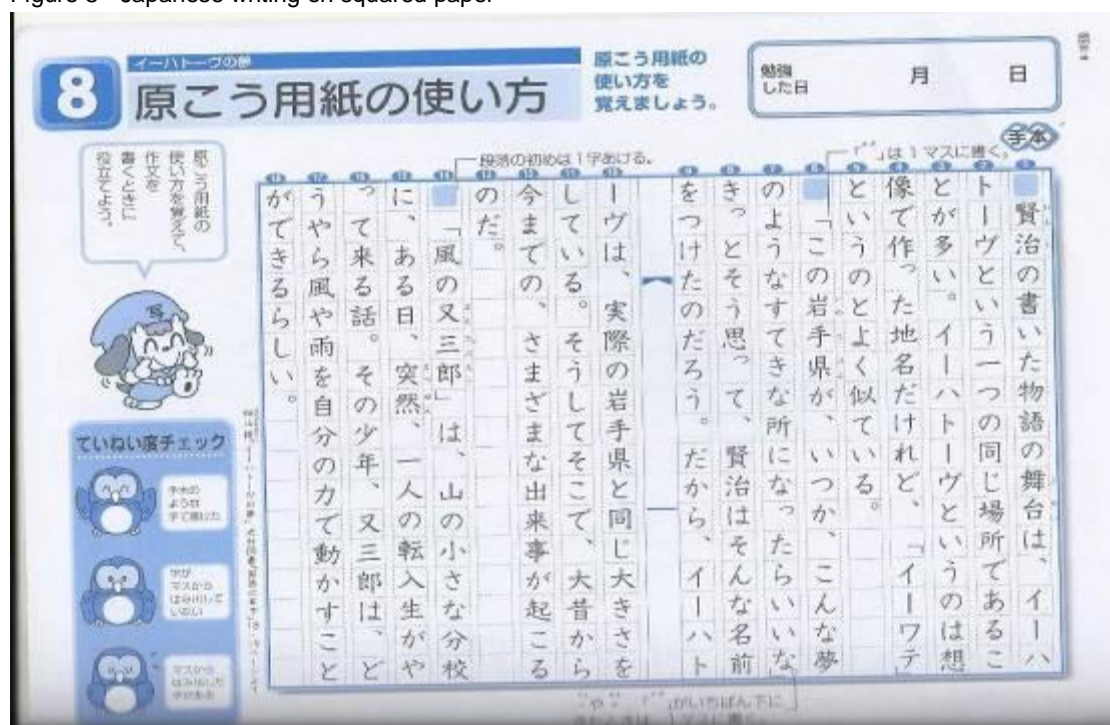 Figure 8 - Japanese writing on squared paper
8
イーハトーヴの夢
原こう用紙の使い方
原こう用紙の
使い方を
覚えましょう。
勉強
した日
月
日
手本
段落の初めは1字あける。
は1マスに書く。
原こう用紙の
使い方を覚えて、
作文を
書くときに
役立てよう。
賢治の書いた物語の舞台は、イーハ
トーヴという一つの同じ場所であるこ
とが多い。イーハトーヴというのは想
像で作った地名だけれど、「イーワテ」
というのとよく似ている。
「この岩手県が、いつか、こんな夢
のようなすてきな所になったらいいな」
きっとそう思って、賢治はそんな名前
をつけたのだろう。だから、イーハト
ーヴは、実際の岩手県と同じ大きさを
している。そうしてそこで、大昔から
今までの、さまざまな出来事が起こる
のだ。
「風の又三郎」は、山の小さな分校
に、ある日、突然、一人の転入生がや
って来る話。その少年、又三郎は、ど
うやら風や雨を自分の力で動かすこと
ができるらしい。
ていねい度チェック
手本の
ような
字で書けた
字が
マスから
はみ出して
いない
マスから
はみ出した
字がある
がいちばん下に